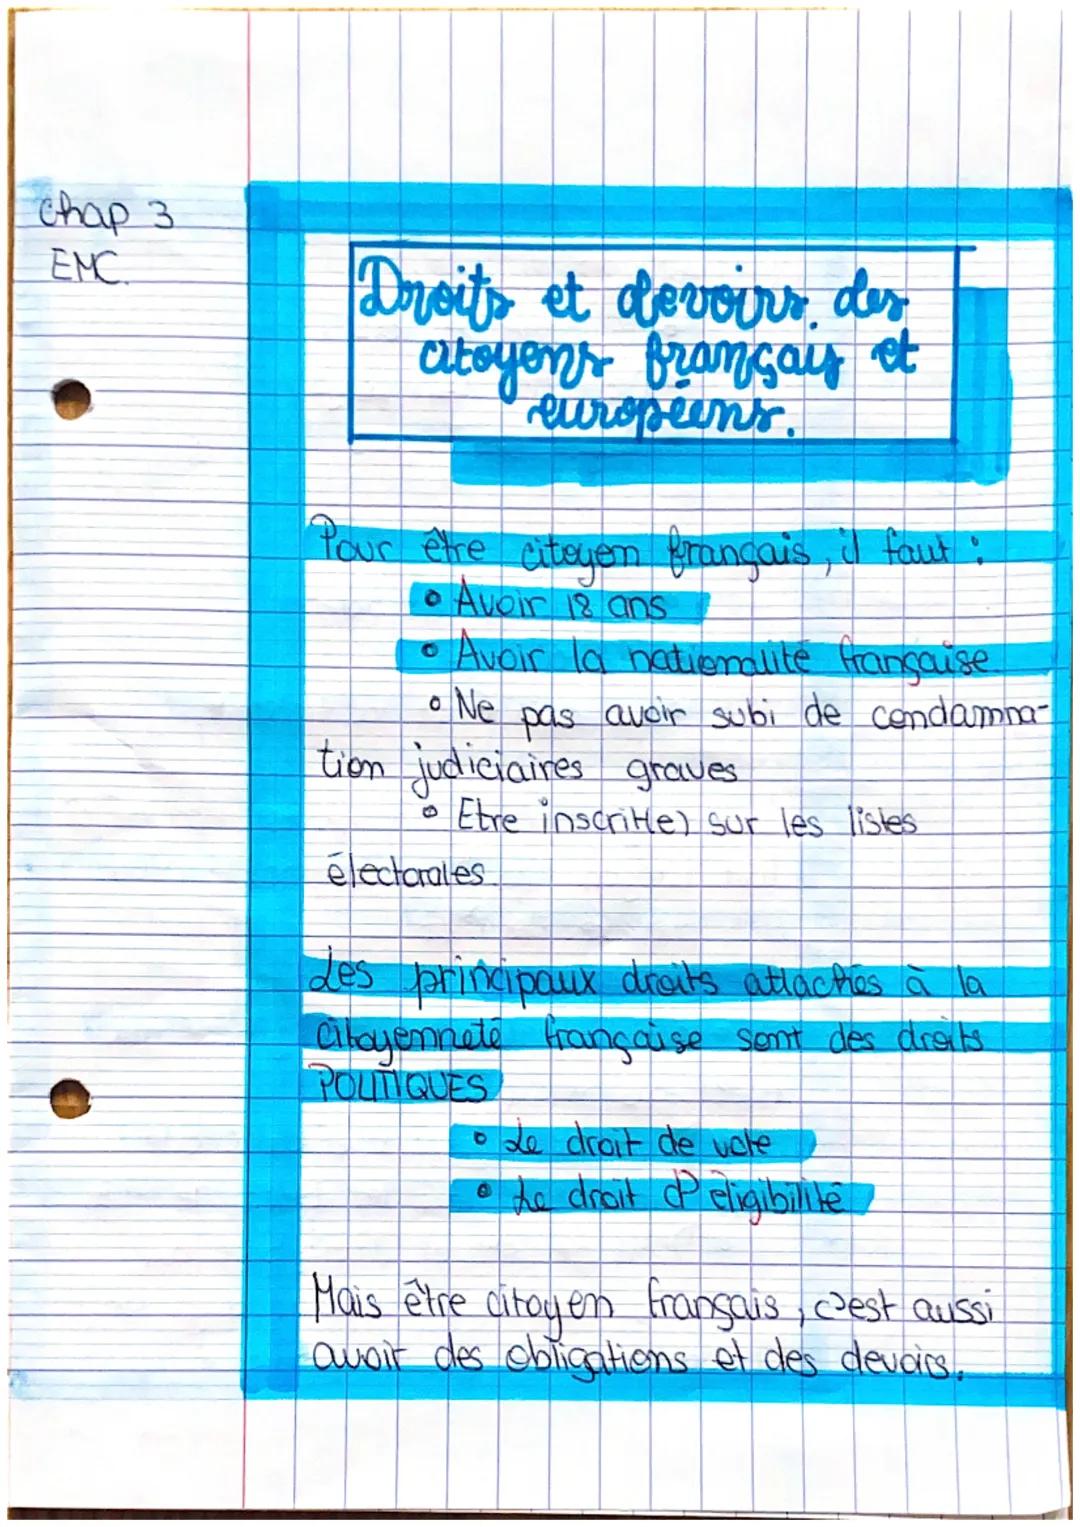 Chap 3
EMC.
Droits et devoirs des
citoyens français et
européens.
Pour être citoyen français, il faut :
• Avoir 18 ans
• Avoir la nationalité française
• Ne pas avoir subi de condamna-
tion judiciaires graves
• Etre inscrit(e) sur les listes
électorales.
Les principaux droits attachés à la
citoyenneté française sont des droits
POLITIQUES
• Le droit de vote
• Le droit d'éligibilité
Mais être citoyen français, c'est aussi
avoir des obligations et des devoirs.